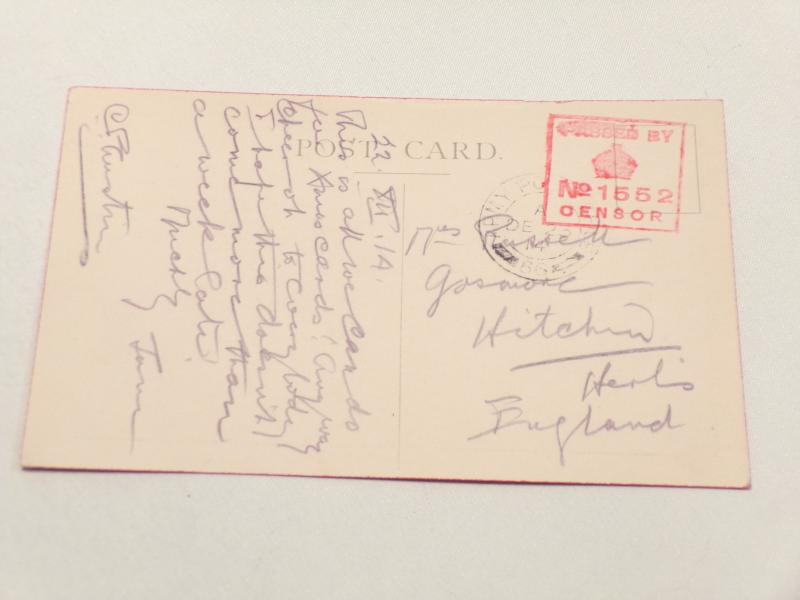 POST CARD.
PASSED BY
No 1552
CENSOR
22. XII. 14.
This is all we can do
for Xmas cards! Anyway
cheer oh to everybody
I hope this doesn't
come more than
a week late!
Mrs Russell
Gosmore
Hitchin
Herts
England